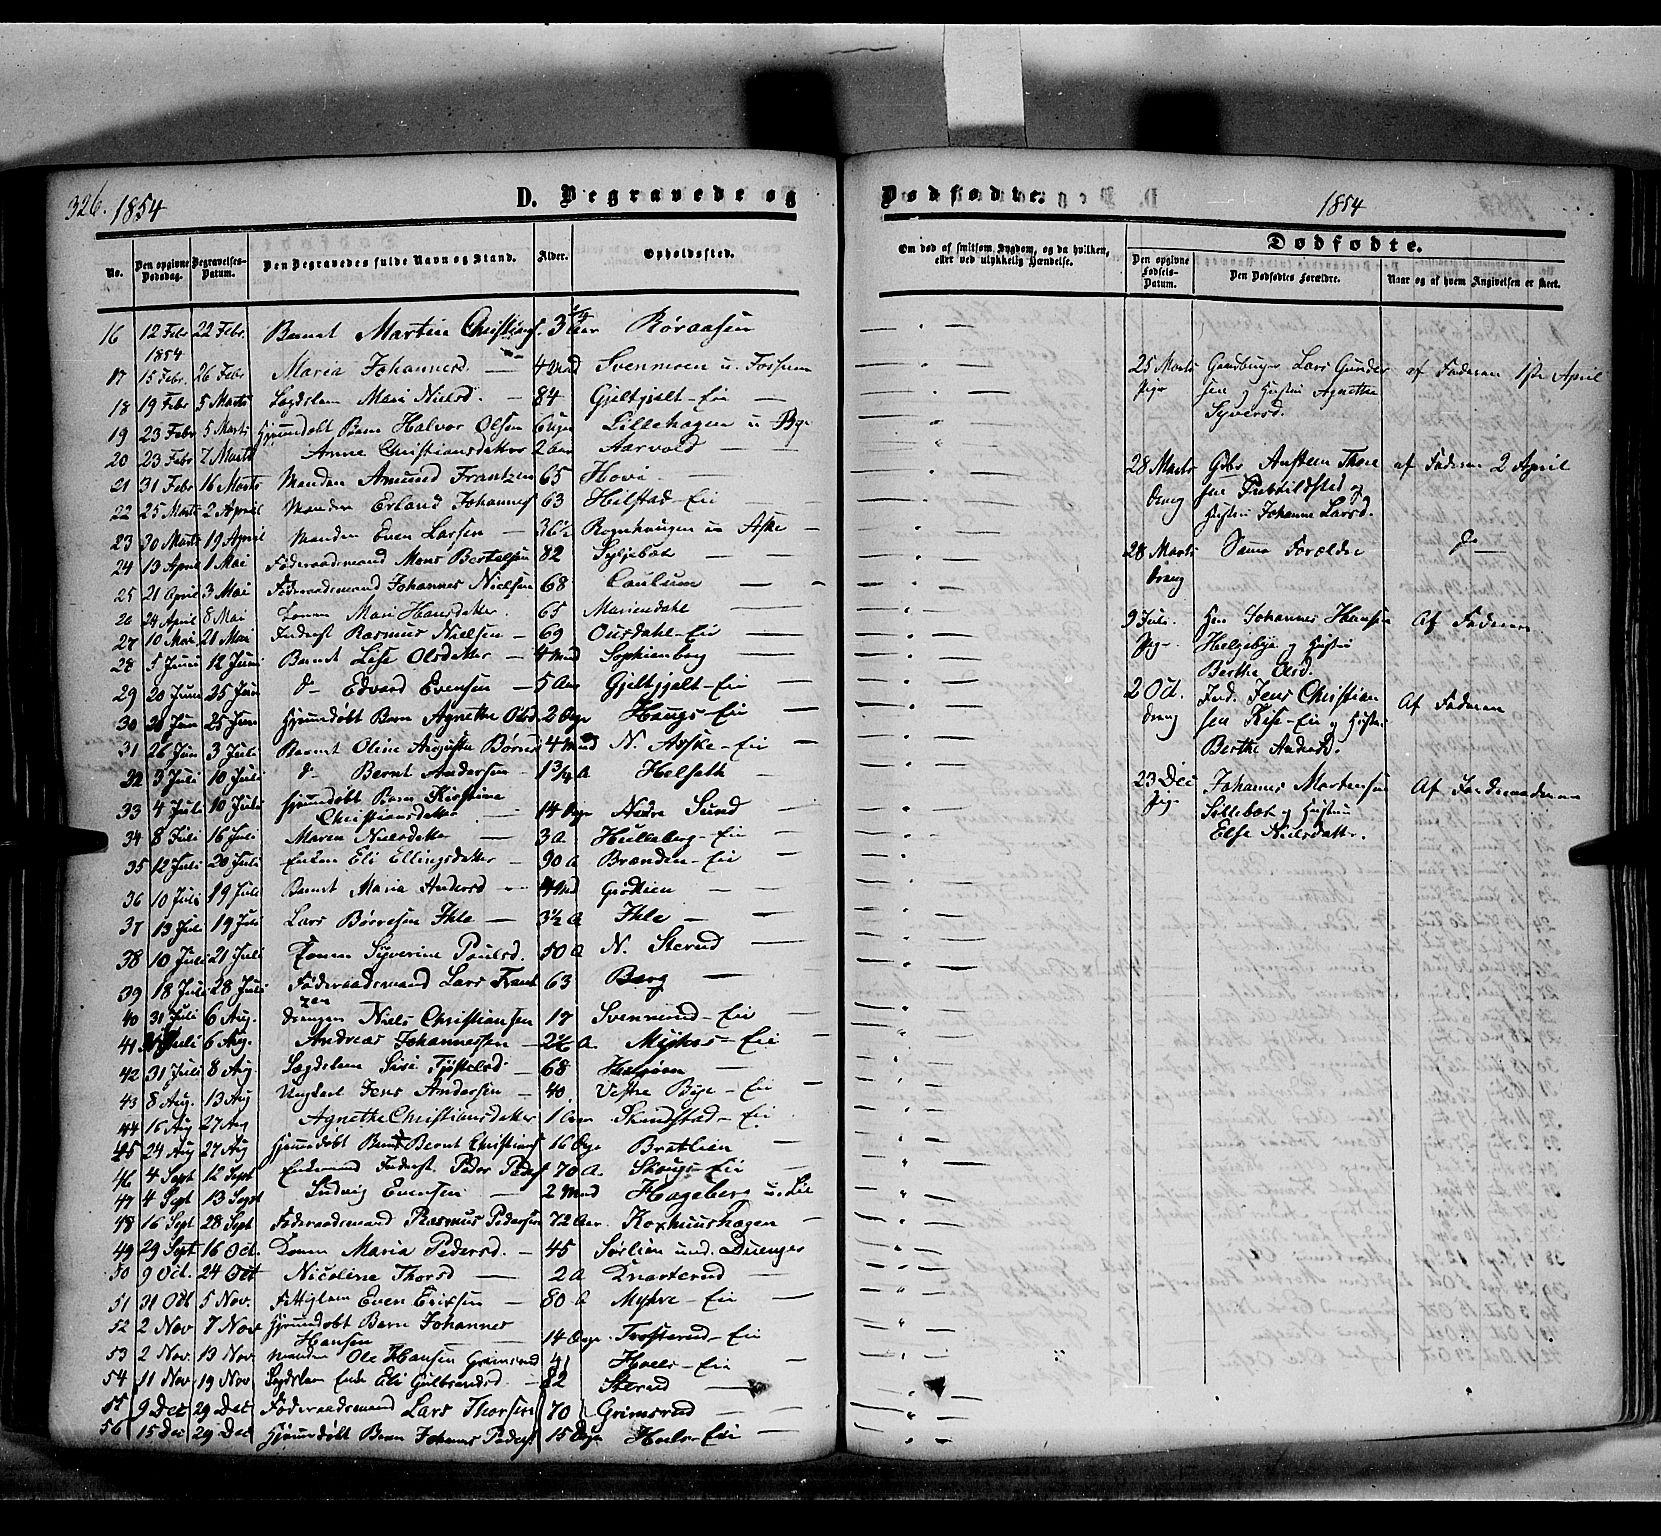 326. 1854
D. Begravede og
Dødfødte.
1854
No.
Den opgivne Dødsdag.
Begravelses-Datum.
Den Begravedes fulde Navn og Stand.
Alder.
Opholdssted.
Om død af smitsom Sygdom, og da hvilken, eller ved ulykkelig Hændelse.
Dødfødte.
Den opgivne Fødsels-Datum.
Den Dødfødtes Forældre.
Naar og af hvem Angivelsen er skeet.
16 12 Febr 1854 22 Febr. Barnet Martin Christians. Røraasen
17 15 Febr. 26 Febr Maria Johannesd. — 4 Mnd Svenmoen u. Fossum
18 19 Febr 5 Marts Lægdslem Mari Nielsd. — 84 Gjeltgjelt-Eie —
19 23 Febr 5 Marts Hjemmdøbt Barn Halvor Olsen 6 Ugr Lillehagen u
20 23 Febr 7 Marts Anne Christiansdatter 2 Aar Aarvold —
21 31 Febr 16 Marts Manden Amund Frantzen 65 Hovi —
22 25 Marts 2 April Manden Erland Johannes 63 Helstad-Eie —
23 30 Marts 19 April Manden Even Larsen — 36½ Rognhaugen u Aske —
24 13 April 1 Mai Føderaadsmand Mons Bertelsen 82 Syljebøt —
25 21 April 3 Mai Føderaadsmand Johannes Nielsen 68 Caulum —
26 24 April 8 Mai Konen Mari Hansdatter. 65 Mariendahl —
27 10 Mai 21 Mai Inderst Rasmus Nielsen — 69 Ousdahl-Eie —
28 5 Juni 12 Juni Barnet Lise Olsdatter — 4 Mnd Sophienberg —
29 20 Juni 25 Jun d— Edvard Evensen — 5 Aar Gjeltgjelt-Eie —
30 20 Jun 25 Jun Hjemmdøbt Barn Agnethe Olsd 2 Dage Haugs-Eie —
31 26 Jun 3 Juli Barnet Oline Augusta Børres 4 Mnd N. Aske-Eie —
32 3 Juli 10 Juli d— Bernt Andersen — 1¾ A Helseth —
33 4 Juli 10 Juli Hjemmdøbt Barn Kirstine
Christiansdatter — 14 Dage Nedre Sund —
34 8 Juli 16 Juli Maren Nielsdatter — 3 A Hulleberg-Eie —
35 12 Juli 20 Juli Enken Eli Ellingsdatter — 90 A Brænden-Eie —
36 10 Juli 19 Juli Barnet Maria Andersd — 4 Mnd Grødlien —
37 13 Juli 19 Juli Lars Børresen Ihle — 3½ A Ihle —
38 10 Juli 21 Juli Konen Syverine Paulsd. 50 A N. Sterud —
39 18 Juli 28 Juli Føderaadsmand Lars Frant
zen 63 Berg —
40 31 Juli 6 Aug. Drengen Niels Christiansen 17 Svenerud-Eie —
41 Juli 6 Aug. Andreas Johannessen — A. Myhrs-Eie —
42 31 Juli 8 Aug. Lægdslem Siri Tjøstelsd — 68
43 8 Aug. 13 Aug Ungkarl Jens Andersen — 40. Vestre Bye-Eie —
44 16 Aug 27 Aug Agnethe Christiansdatter 1 Aar Skundstad-Eie
45 24 Aug 27 Aug Hjemmdøbt Barn Bernt Christians 16 Dge Bratlien —
46 4 Sept 12 Sept Enkemand Inderst. Peder Peders 70 A. Skougs-Eie —
47 4 Sept 13 Sept Ludvig Evensen — 2 Mnd Hageberg u. Lie
48 16 Sept 28 Sept Føderaadsmand Rasmus Pedersen 72 Aar. Kormunshagen —
49 29 Sept 16 Oct. Konen Maria Pedersd. — 45 Sørlien und. Duenger
50 9 Oct. 24 Oct Nicoline Thorsd — 2 A Dvarterud —
51 31 Oct 5 Nov. Fattiglem Even Eriksen — 80 A Myhre-Eie —
52 2 Nov 7 Nov Hjemmdøbt Barn Johannes
Hansen — 14 Dage. Trosterud-Eie
53 2 Nov 13 Nov Manden Ole Hansen Grimsrud 41 Hoels-Eie —
54 11 Nov 19 Nov Lægdslem Enke Eli Gulbransd. — 82 Sterud —
55 9 Dec 29 Dec Føderaadsmand Lars Thorsen 70 Grimsrud —
56 15 Dec 29 Dec Hjemmdøbt Barn Johannes Peders 15 Dage Hoels-Eie —
25 Marts Pige
Gaardbruger Lars Gunder
sen og Hustru Agnethe
Syversd.
af Faderen 1ste April
28 Marts Dreng
Gbr Austen Thore
sen og
Hustru Johanne Larsd.
af Faderen 2 April
28 Marts Dreng
Samme Forældre
do —
9 Juli. Pige
Johannes Hansen
Helgebye og Hustru
Berthe Olsd.
Af Faderen
2 Oct. Dreng
Ind. Jens Christian
sen Kise-Eie og Hustru
Berthe Andersd.
Af Faderen
23 Dec Pige
Johannes Mortensen
Sillebøt og Hustru
Else Nielsdatter.
Af Jordemoderen